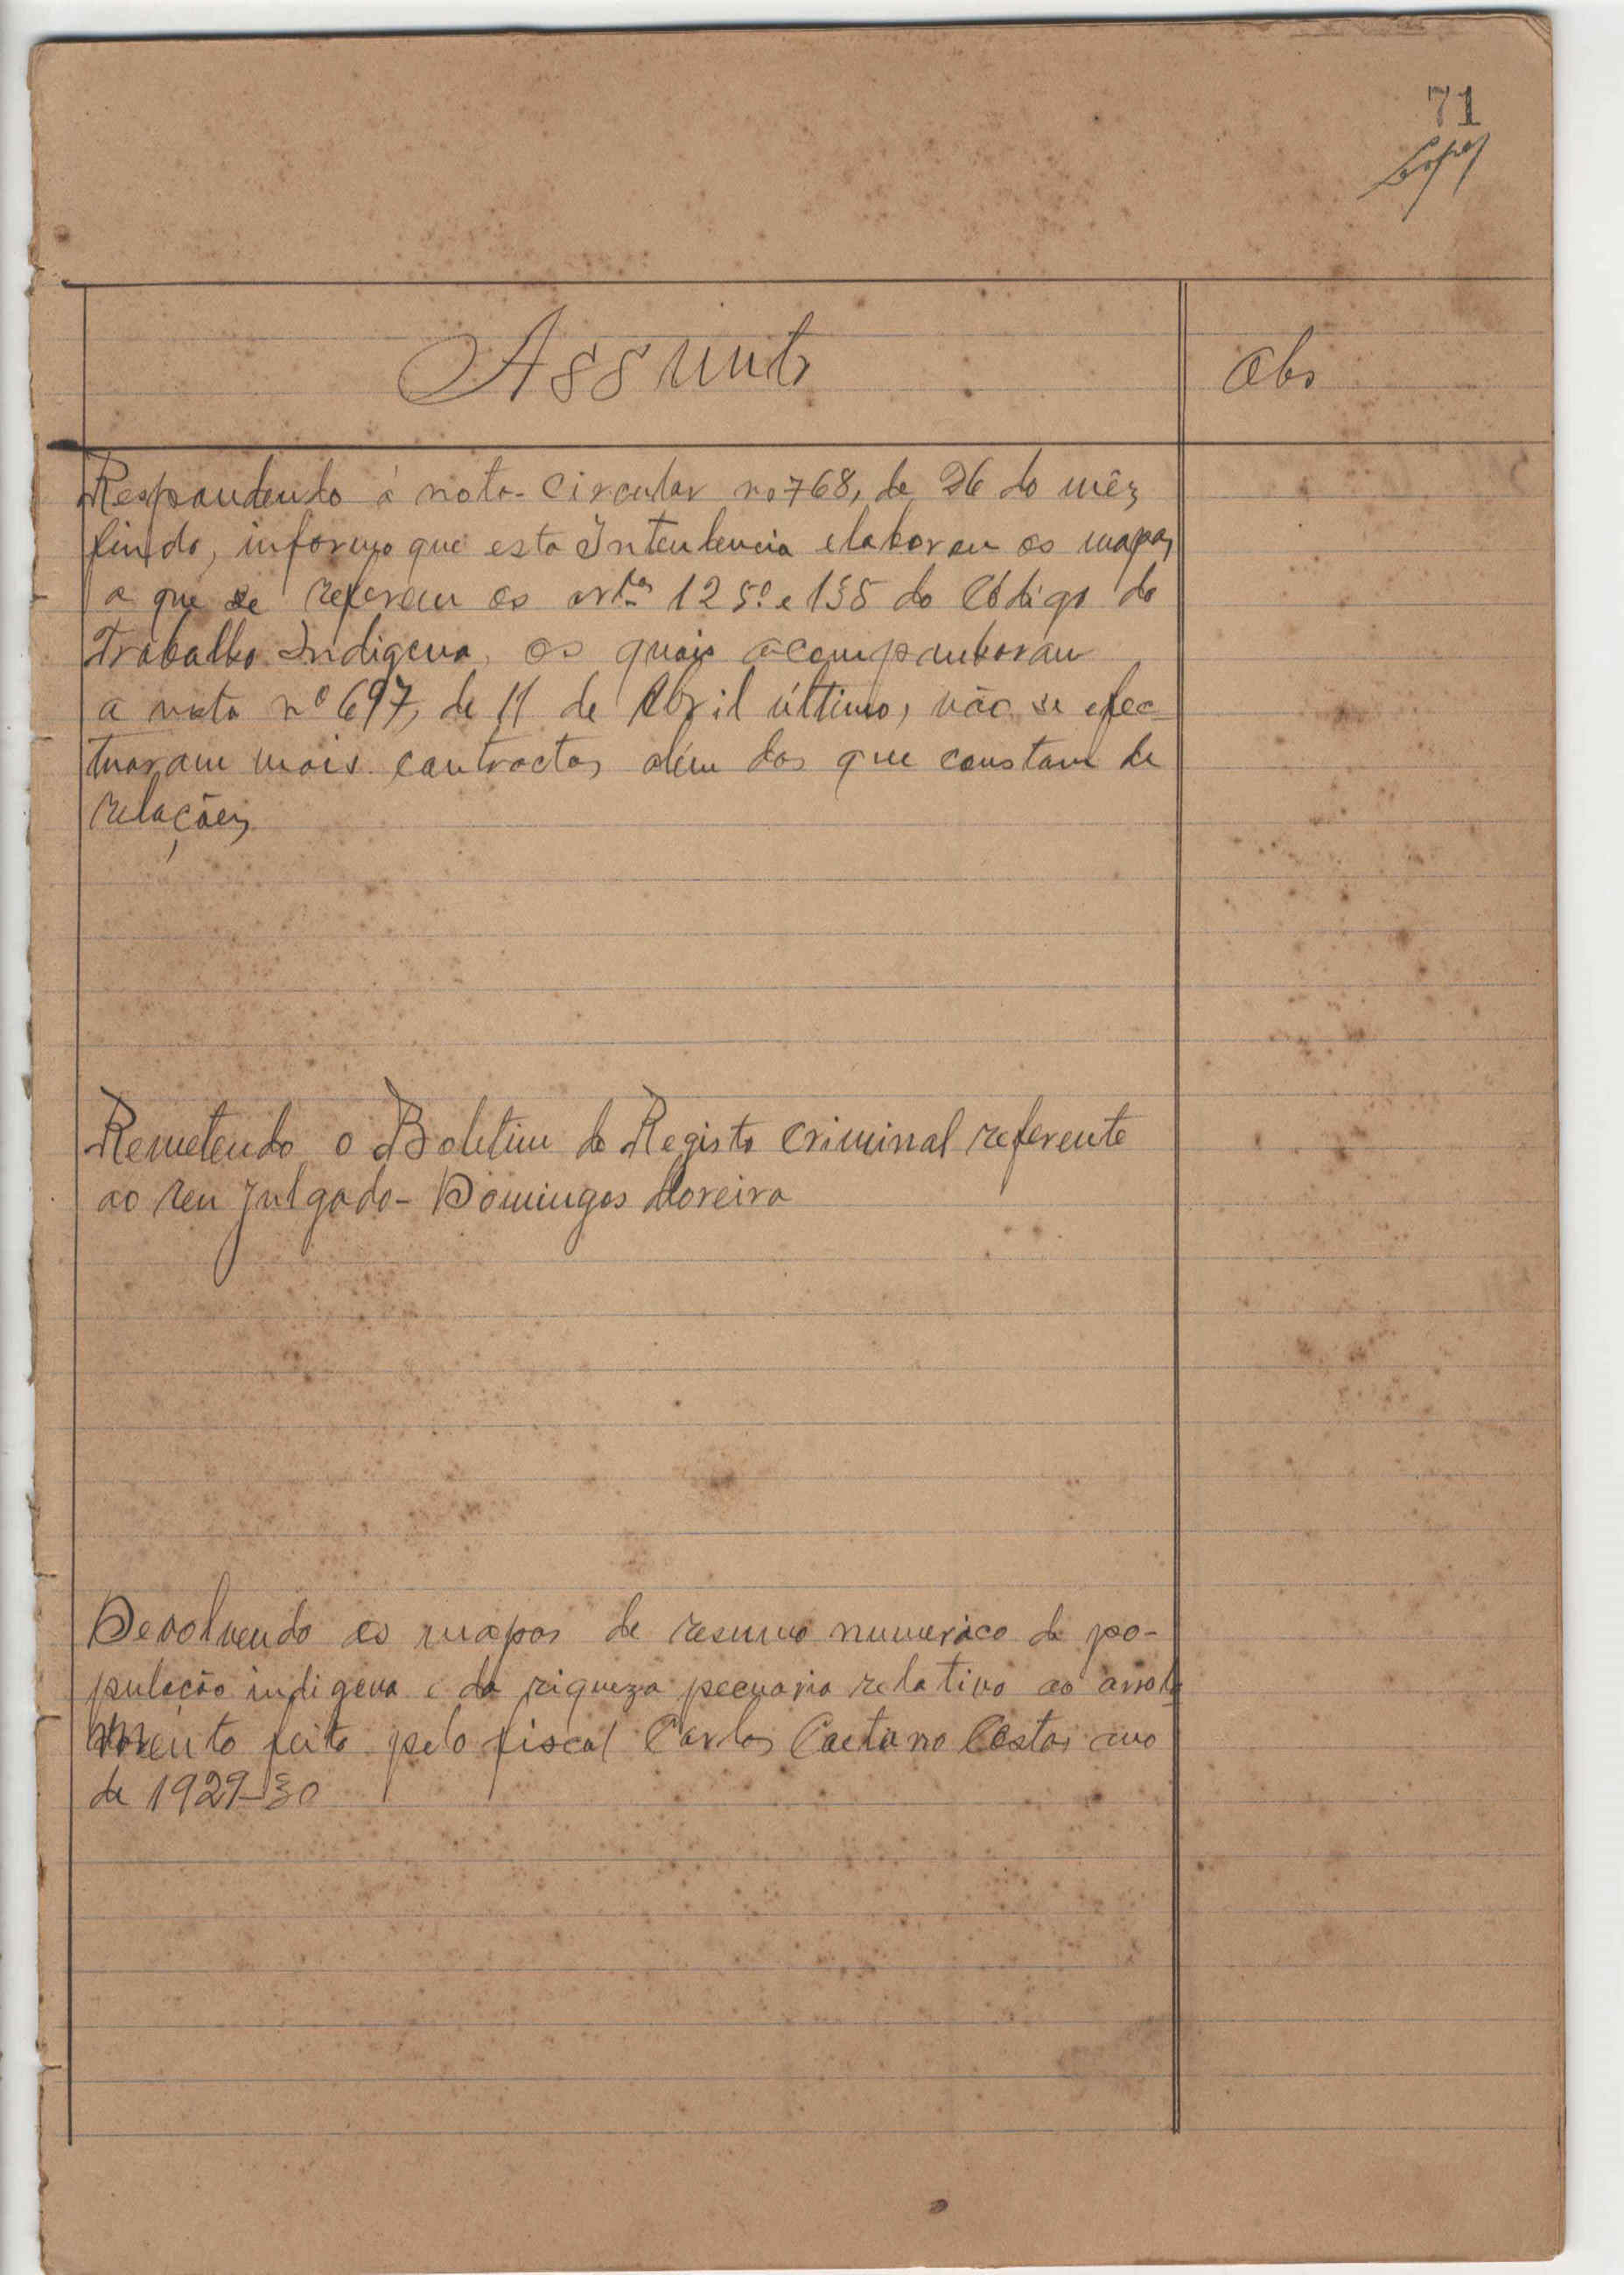 71
Lopes
Assunto
Obs
Respondendo á nota-circular no 768, de 26 do mês
findo, informo que esta Intendencia elaborou os mapas
a que se referem os artos 125º e 135 do Código do
Trabalho Indigena, os quais acompanharam
a nota nº 697, de 11 de Abril último, não se efec-
tuaram mais contractos além dos que constam de
relações
Remetendo o Boletim do Registo Criminal referente
ao reu julgado - Domingos Moreira
Devolvendo os mapas de resumo numerico da po-
pulação indigena e da riqueza pecuaria relativo ao arrola
mento feito pelo fiscal Carlos Caetano Costa, ano
de 1929-30